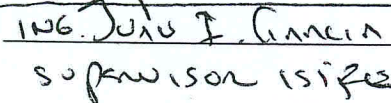 ING. JUAN I. GARCIA
SUPERVISOR ISIFE